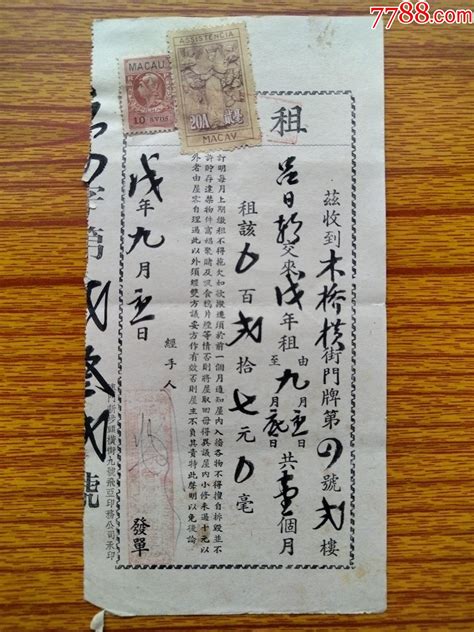 7788.com
MACAU
10 AVOS
ASSISTENCIA
20A 貳毫
MACAU
租
茲收到木桥橫街門牌第四號弍樓
呂日 交來戊年租由九月 日至九月底日共壹個月
租該 百弍拾七元 毫
訂明每月上期繳租不得拖欠如欲搬遷須於前一個月通知屋內入牆各物不得擅自拆毀並不
許貯存違禁物件窩娼聚賭及吸食鴉片煙等情否則將屋取回毋得異議屋內小修未過十元以
外者由屋客自理過此以外須經雙方議妥方作有效否則屋主不負其責特此聲明以免後論
經手人
發單
戊年九月 日
字第 號
橫街九號飛亞印務公司承印